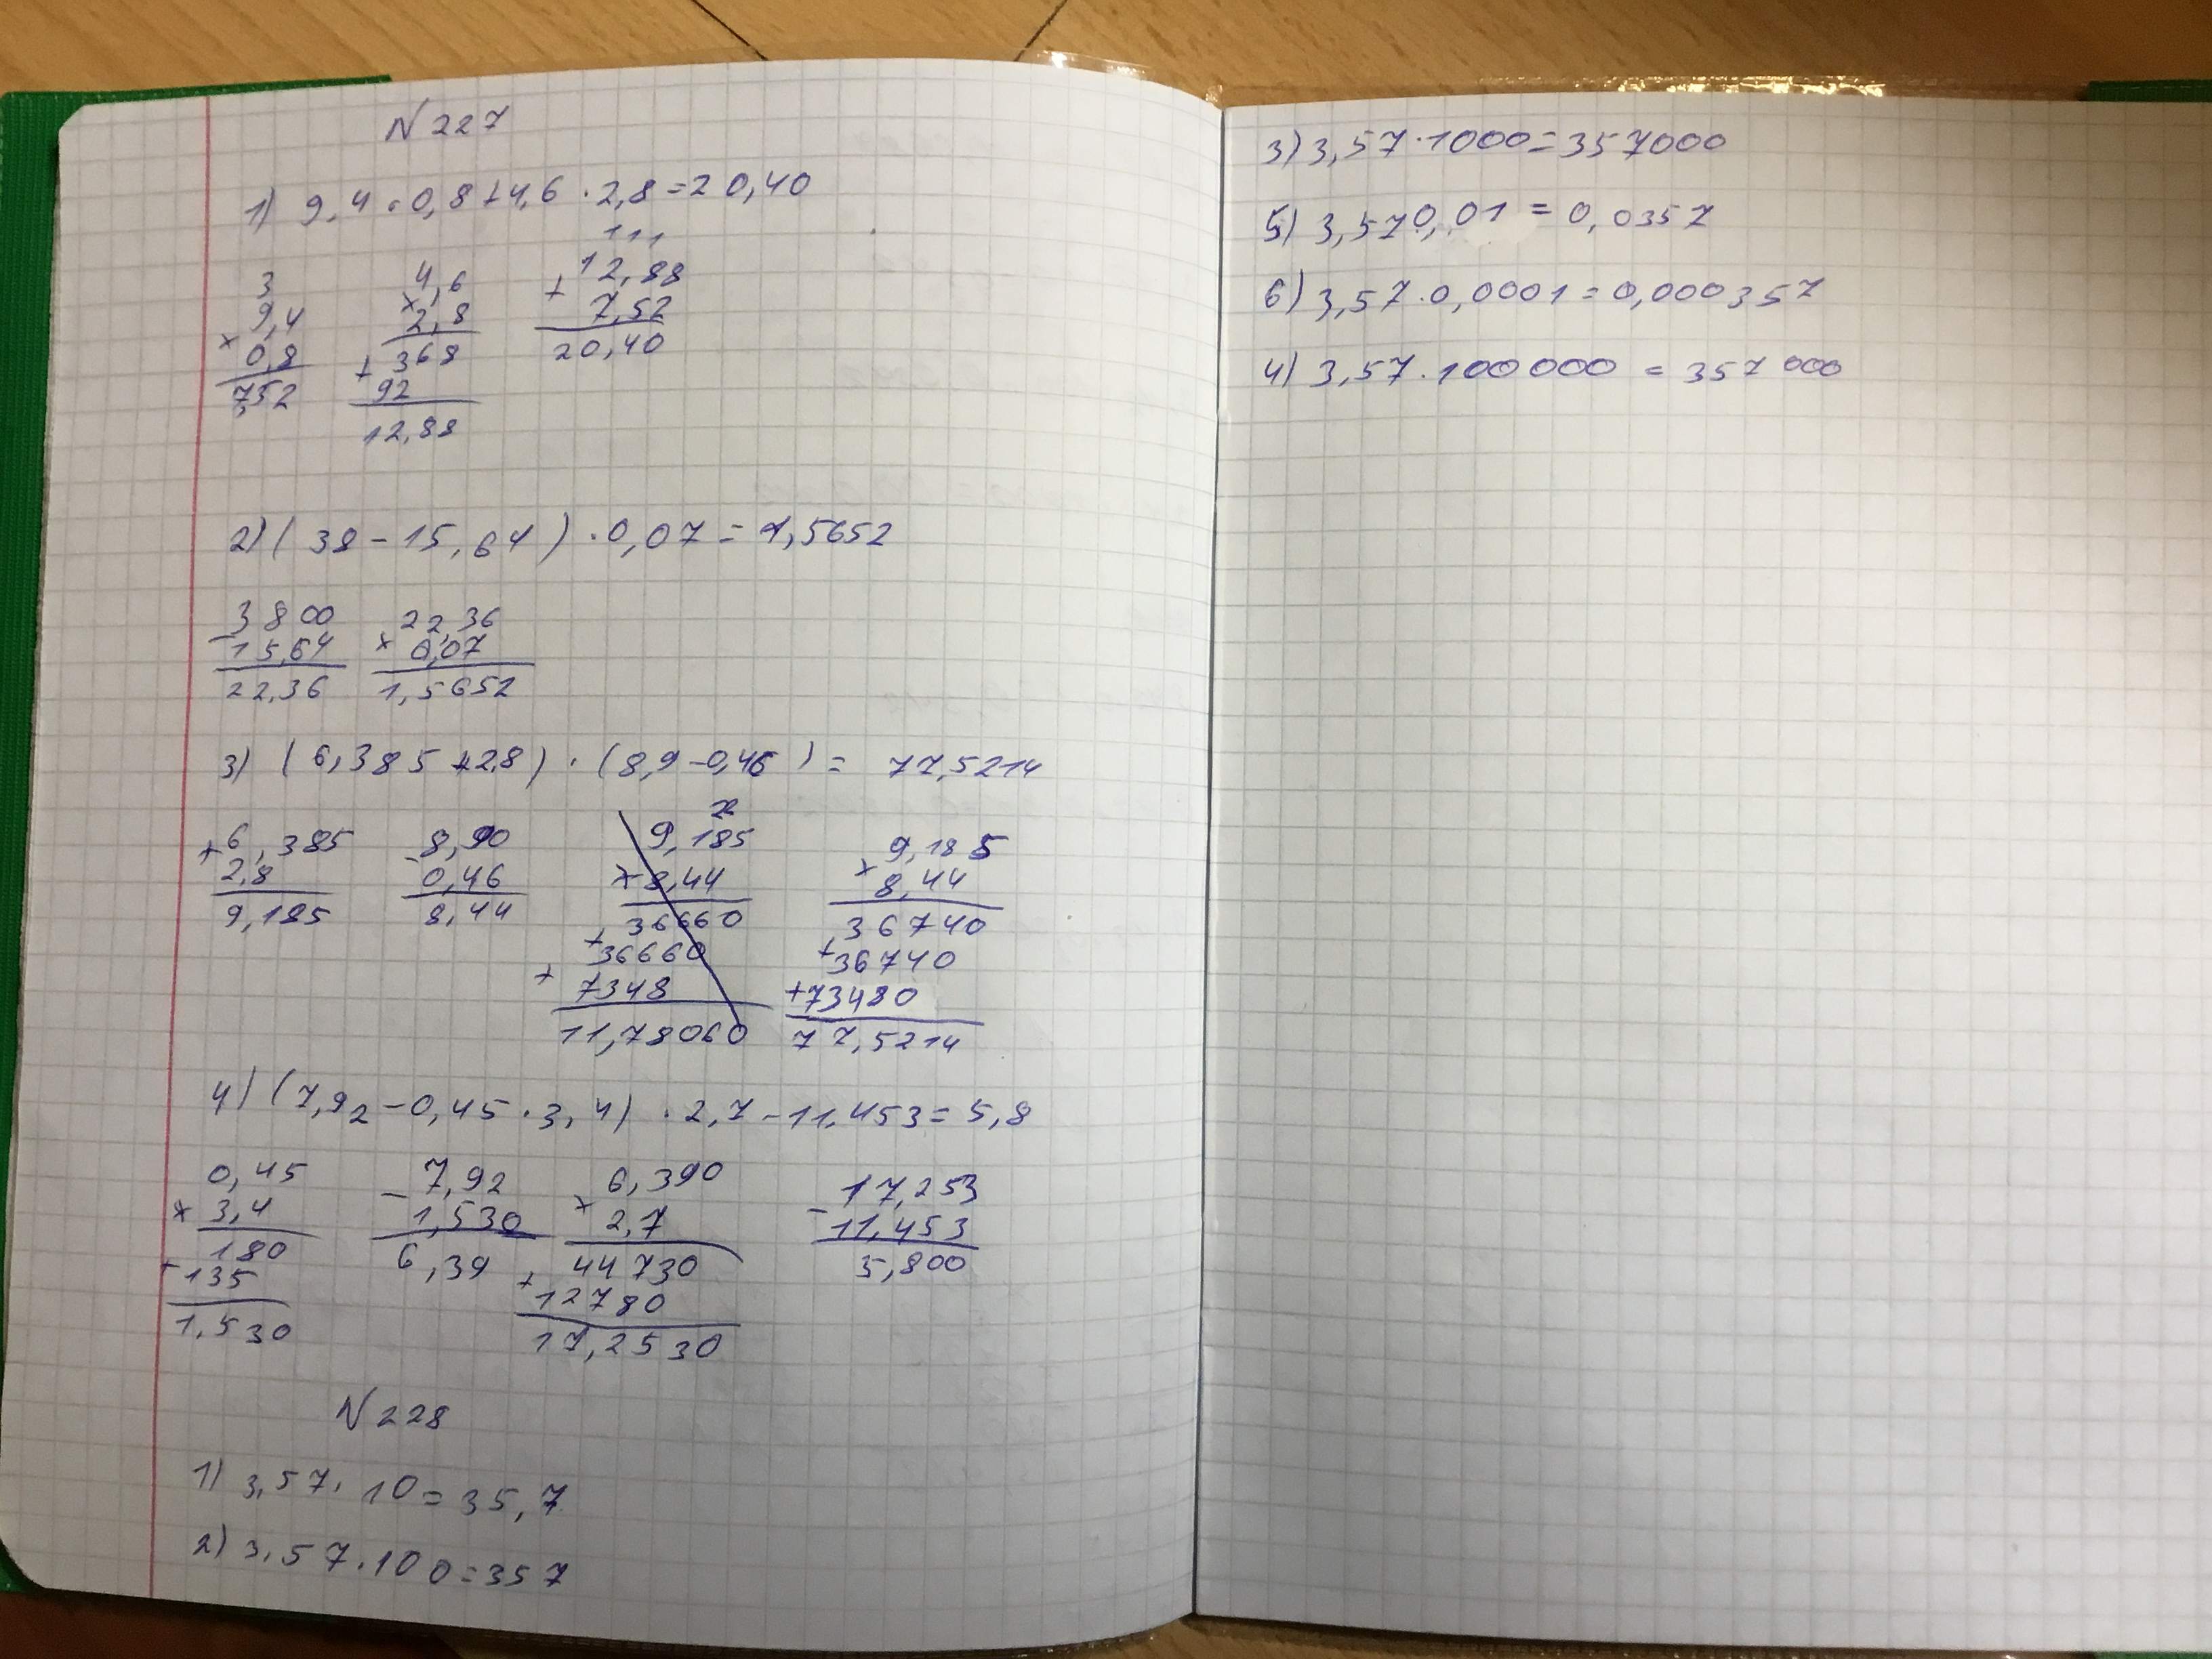 N 227
1) 9,4 · 0,8 + 4,6 · 2,8 = 20,40
3
9,4
× 0,8
7,52
4,6
× 2,8
368
+ 92
12,88
111
12,88
+ 7,52
20,40
2) (38 - 15,64) · 0,07 = 1,5652
3800
- 15,64
22,36
22,36
× 0,07
1,5652
3) (6,385 + 2,8) · (8,9 - 0,46) = 77,5214
6,385
+ 2,8
9,185
8,90
- 0,46
8,44
9,185
× 8,44
36660
+ 36660
+ 7348
11,78060
9,185
× 8,44
36740
+ 36740
+ 73480
77,5214
4) (7,92 - 0,45 · 3,4) · 2,7 - 11,453 = 5,8
0,45
× 3,4
180
+ 135
1,530
7,92
- 1,530
6,39
6,390
× 2,7
44730
+ 12780
17,2530
17,253
- 11,453
5,800
N 228
1) 3,57 · 10 = 35,7
2) 3,57 · 100 = 357
3) 3,57 · 1000 = 357000
5) 3,57 0,01 = 0,0357
6) 3,57 · 0,0001 = 0,000357
4) 3,57 · 100000 = 357000